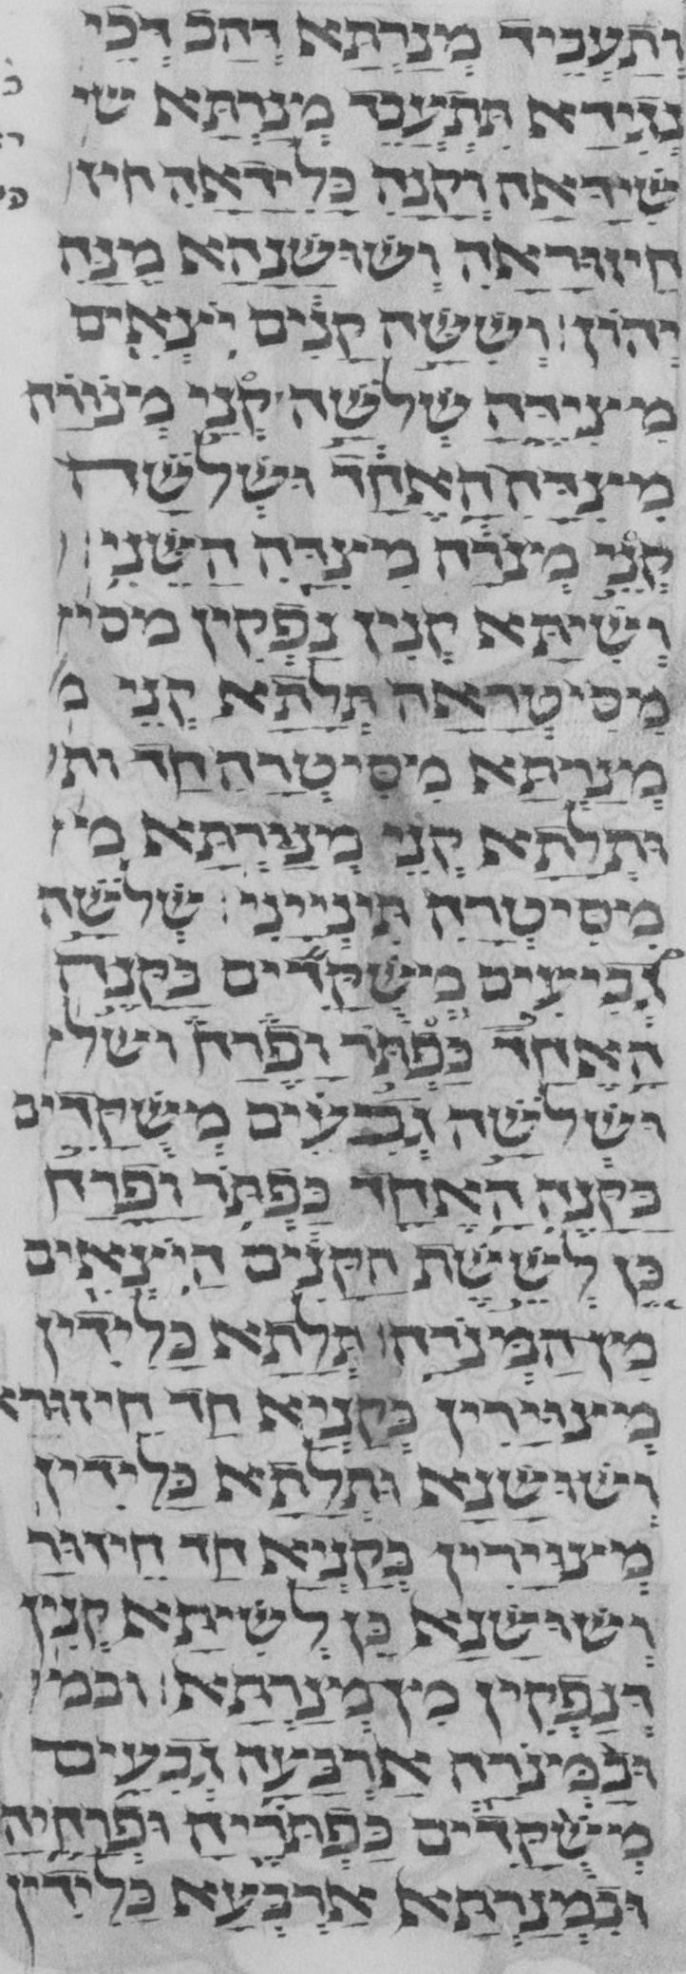 וְתַעֲבֵיד מְנָרְתָא דְהַב דְּכֵי
נְגִידָא תִּתְעֲבֵד מְנָרְתָא שי
שִׁידַאּהּ וּקְנַהּ כַּלִּידַאהָ חיז
חֵיזּוּרַאהָ וְשׁוֹשַׁנַּהָא מִנַּהּ
יְהוֹן׃ וְשִׁשָּׁה קָנִים יֹצְאִים
מִצִּידֶּהָ שְׁלֹשָׁה קְנֵי מְנוֹרָה
מִיצִּדָּהּ הָאֶחָד וּשְׁלֹשָׁה
קְנֵי מְנֹרָה מִיצִּדָּהּ הַשֵּׁנִי׃
וְשִׁיתָּא קְנִין נָפְקִין מסיו
מִסִּיטְרַאהּ תְּלָתָא קְנֵי מ
מְנָרְתָא מִסִּיטְרַהּ חַד ות
וּתְלָתָא קְנֵי מְנָרְתָּא מי
מִסִּיטְרַהּ תִּינְיָינֵי׃ שְׁלֹשָׁה
גְבִיעִים מְישֻׁקָּדִים בַּקָּנֶה
הָאֶחָד כַּפְתֹּר וּפֶרַח ושלו
וּשְׁלֹשָׁה גְבִעִים מְשֻׁקָּדִים
בַּקָּנֶה הָאֶחָד כַּפְתֹּר וָפָרַח
כֵּן לְשֵׁשֶׁת הַקָּנִים הַיֹּצְאִים
מִן הַמְּנֹרָה׃ תְּלָתָא כַּלִּידִין
מְיצוּיָּרִין בְּקַנְיָא חַד חֵיזּוּרא
וְשׁוֹשַׁנָּא וּתְלָתָא כַּלִּידִין
מְיצוּיָּרִין בְּקַנְיָא חַד חֵיזּוּר
וְשׁוֹשַׁנָּא כֵּן לְשִׁיתָא קְנִין
דְּנָפְקִין מִן מְנָרְתָא׃ ובמ
וּבַמְּנֹרָה אַרְבָּעָה גְבִעִים
מְשֻׁקָּדִים כַּפְתֹּרֶיהָ וּפְרָחֶיהָ
וּבִמְנָרְתָא אַרְבְּעָא כַּלִּידִין